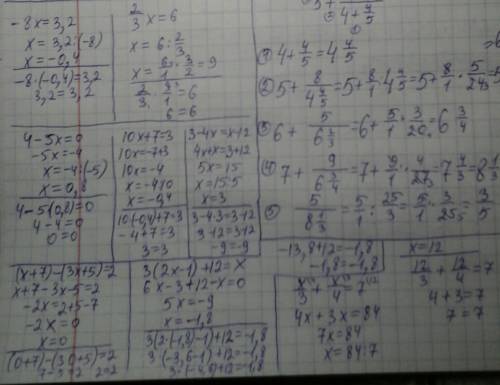 -8x=3,2
x=3,2:(-8)
x=-0,4
-8·(-0,4)=3,2
3,2=3,2
2/3 x=6
x=6:2/3
x=6/1·3/2=9
2/3·9/1=6
6=6
4+4/5
① 4+4/5=4 4/5
② 5+8/(4 4/5)=5+8/1:4 4/5=5+8/1·5/24=
③ 6+5/(6 2/3)=6+5/1·3/20=6 3/4
④ 7+9/(6 3/4)=7+9/1·4/27=7 4/3=8 1/3
⑤ 5/(8 1/3)=5/1:25/3=5/1·3/25=3/5
4-5x=0
-5x=-4
x=-4:(-5)
x=0,8
4-5(0,8)=0
4-4=0
0=0
10x+7=3
10x=-7+3
10x=-4
x=-4:10
x=-0,4
10(-0,4)+7=3
-4+7=3
3=3
3-4x=x-12
4x+x=3+12
5x=15
x=15:5
x=3
3-4·3=3-12
3-12=3-12
-9=-9
(x+7)-(3x+5)=2
x+7-3x-5=2
-2x=2+5-7
-2x=0
x=0
(0+7)-(3·0+5)=2
7-5=2 2=2
3(2x-1)+12=x
6x-3+12-x=0
5x=-9
x=-1,8
3(2·(-1,8)-1)+12=-1,8
3·(-3,6-1)+12=-1,8
3·(-4,6)+12=-1,8
-13,8+12=-1,8
-1,8=-1,8
x/3+x/4=7
4x+3x=84
7x=84
x=84:7
x=12
12/3+12/4=7
4+3=7
7=7